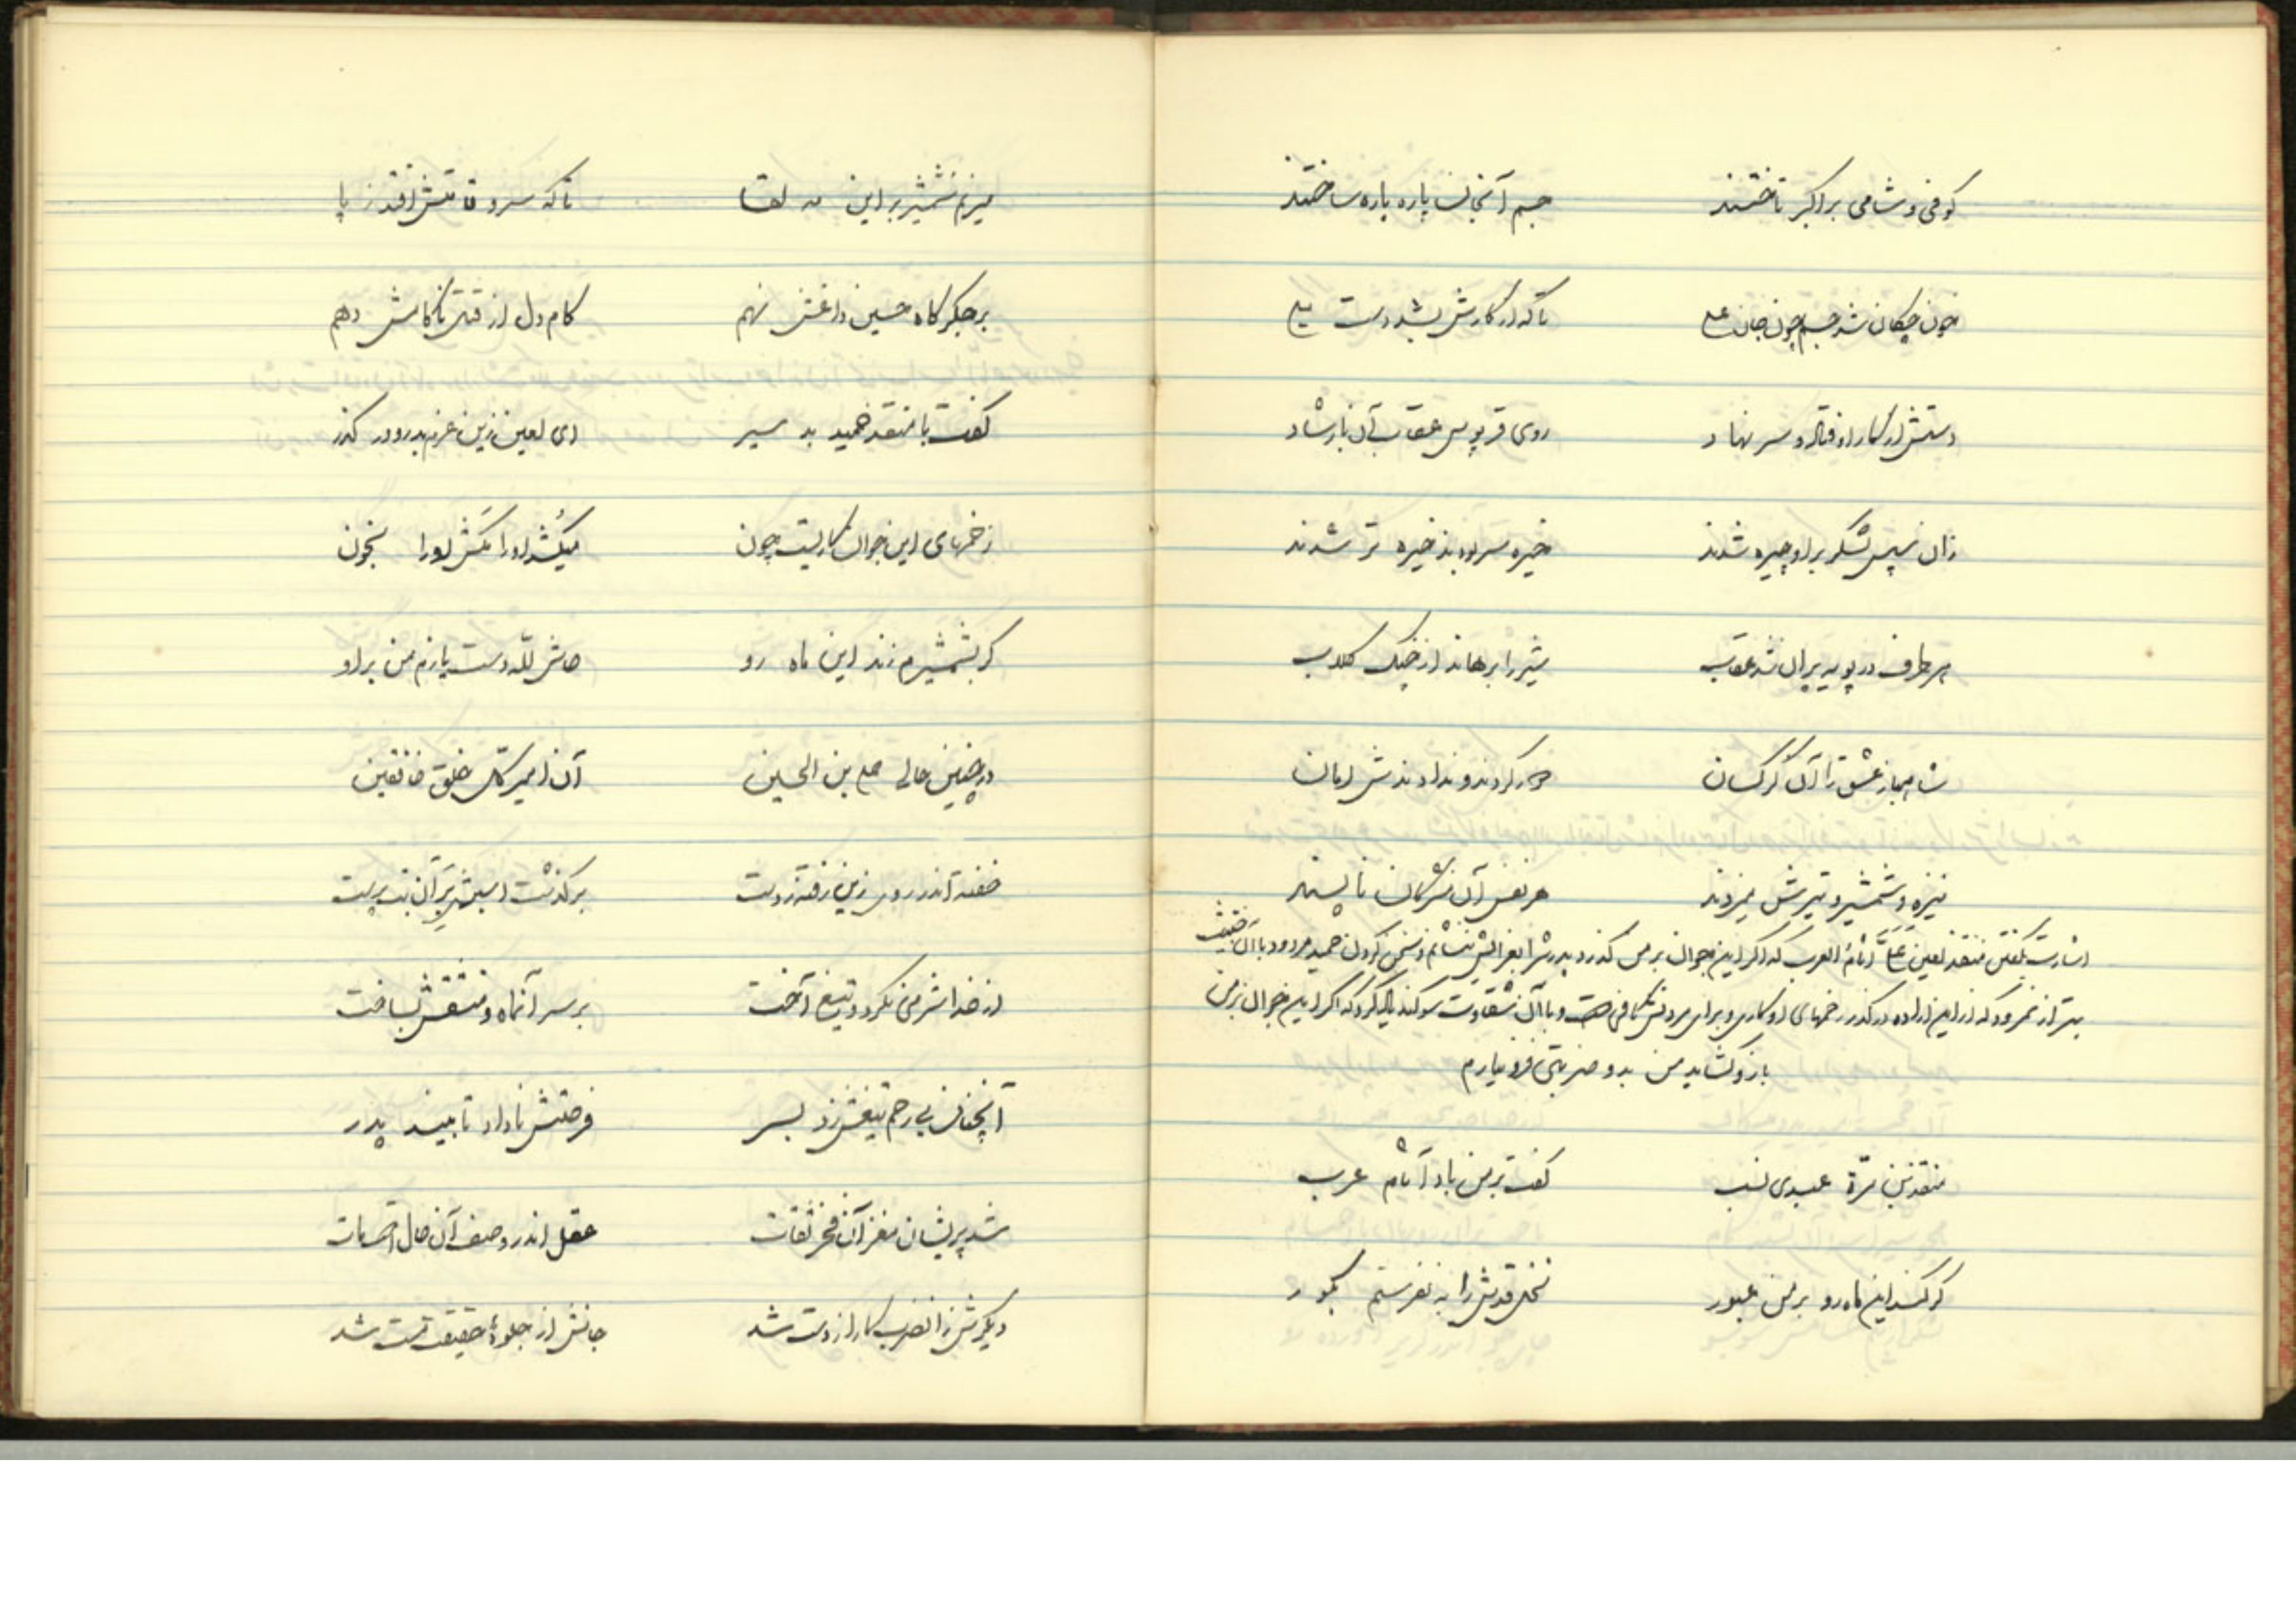 کوفی و شامی بر اکبر تاختند جسم آنجان پاره پاره ساختند
خون چکان شد جسم چون جان علی تا که از کارش بشد دست یلی
دستش از کار اوفتاد و سر نهاد روی قرپوس عقاب آن با رشاد
زان سپس لشکر بر او چیره شدند خیره سر بودند خیره تر شدند
هر طرف در پویه پران شد عقاب شیر را برهاند از چنگ کلاب
شاهباز عشق را آن کرکسان کردند و ندادندش امان
نیزه و شمشیر و تیرش میزدند هر نفس آن مشرکان ناپسند
اشارت بگفتن منقذ لعین علیَّ آثام العرب که اگر این جوان بر من گذرد پدرش را بعزایش بنشانم و سخن کردن حمید مردود با آن خبیث
بتر از نمرود که از این اراده درگذر زخمهای او کاری و برای مردنش کافی است و با آن شقاوت سوگند یاد کرد که اگر این جوان بر من
بازو گشاید من بدو ضربتی فرو نیارم
منقذ بن مرة عبدی نسب گفت بر من باد آثام عرب
گر کند این ماه رو بر من عبور نخل قدش را بفرستم بگور
میزنم شمشیر بر این مه لقا تا که سرو قامتش افتد ز پا
بر جگرگاه حسین داغش نهم کام دل از قتل ناکامش دهم
گفت با منقذ حمید بد سیر ای لعین زین عزم بد رو درگذر
زخمهای این جوان کاریست چون میکُشد او را مَکش او را بخون
گر بشمشیرم زند این ماه رو حاش لله دست یازم من بر او
در چنین حالی علی بن الحسین آن امیر کل خلق خافقین
خفته اندر روی زین رفته ز دست برگذشت اسبش بَرِ آن بت پرست
از خدا شرمی نکرد و تیغ آخت بر سر آنماه و منشقش بساخت
آنچنان بی رحم تیغش زد بسر فرصتش نا داد تا بیند پدر
شد پریشان مغز آن فخر ثقات عقل اندر وصف آن حال است مات
دیگرش زانضرب کار از دست شد جانش از جلوهٔ حقیقت مست شد